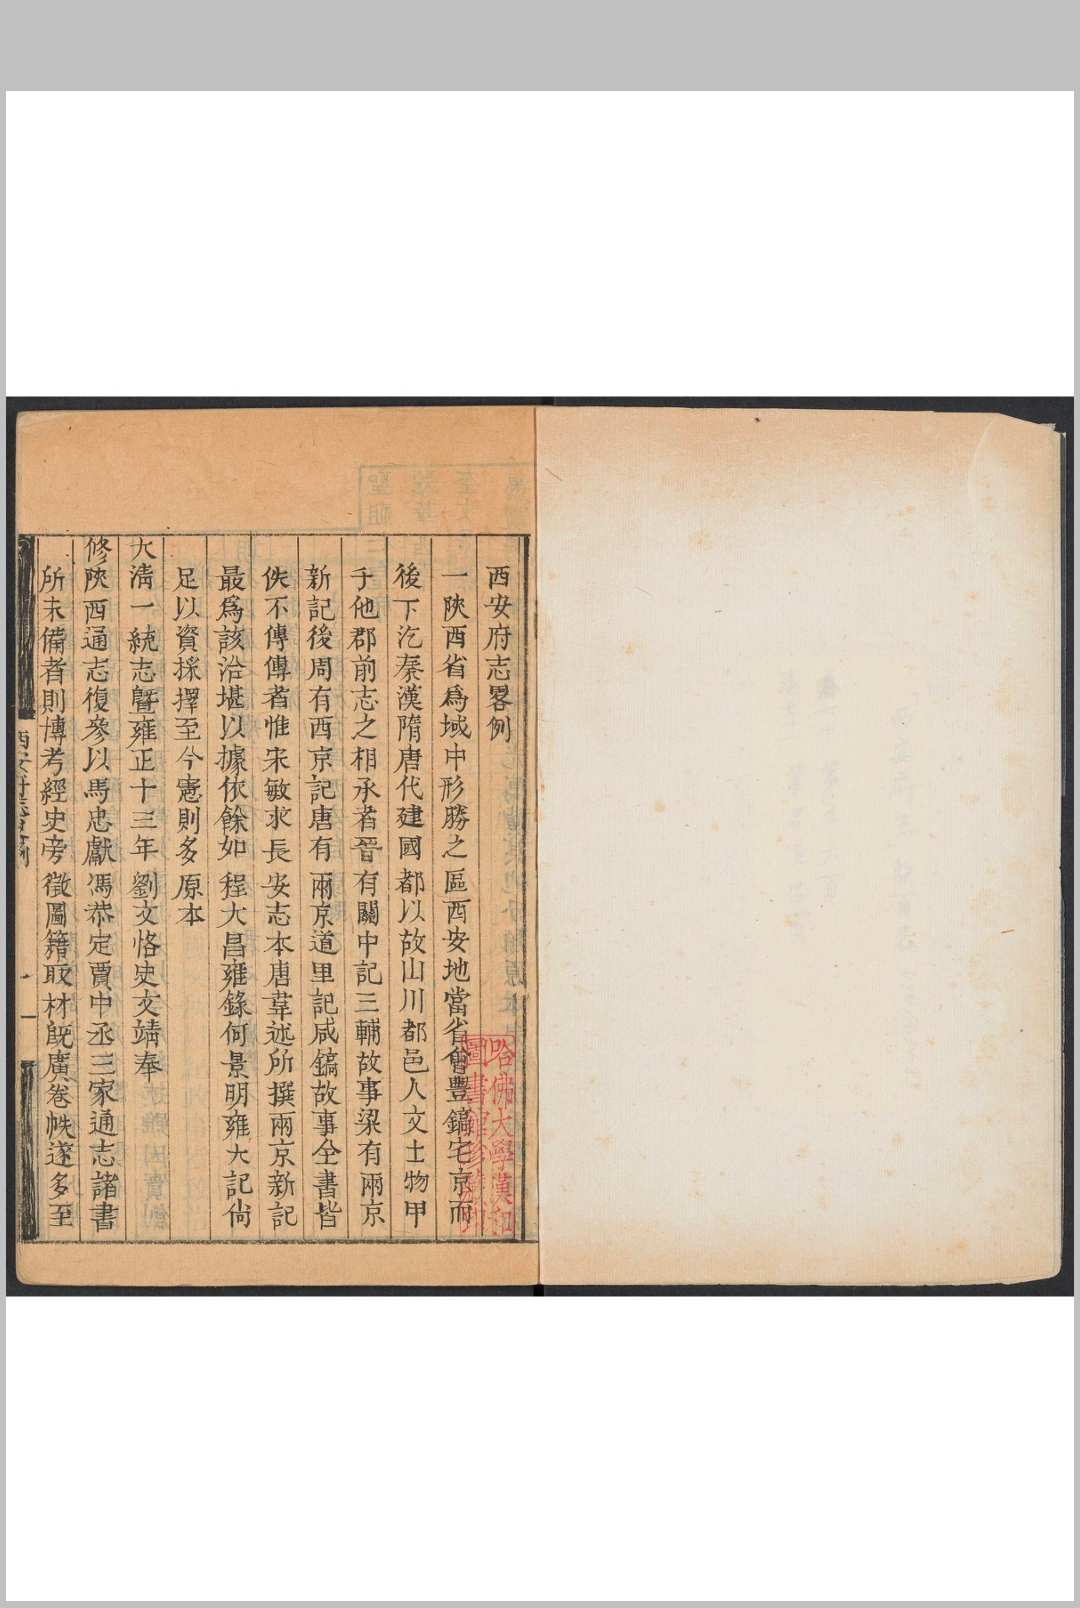 西安府志畧例
一陝西省爲域中形勝之區西安地當省會豐鎬宅京而
後下汔秦漢隋唐代建國都以故山川都邑人文土物甲
于他郡前志之相承者晉有關中記三輔故事梁有兩京
新記後周有西京記唐有兩京道里記咸鎬故事全書皆
佚不傳傳者惟宋敏求長安志本唐韋述所撰兩京新記
最爲該洽堪以據依餘如程大昌雍錄何景明雍大記尙
足以資採擇至今憲則多原本
大淸一統志曁雍正十三年劉文恪史文靖奉
修陝西通志復參以馬忠獻馮恭定賈中丞三家通志諸書
所未備者則博考經史旁徵圖籍取材旣廣卷帙遂多至
西安府志畧例
一
哈佛大學漢和
圖書館珍藏印